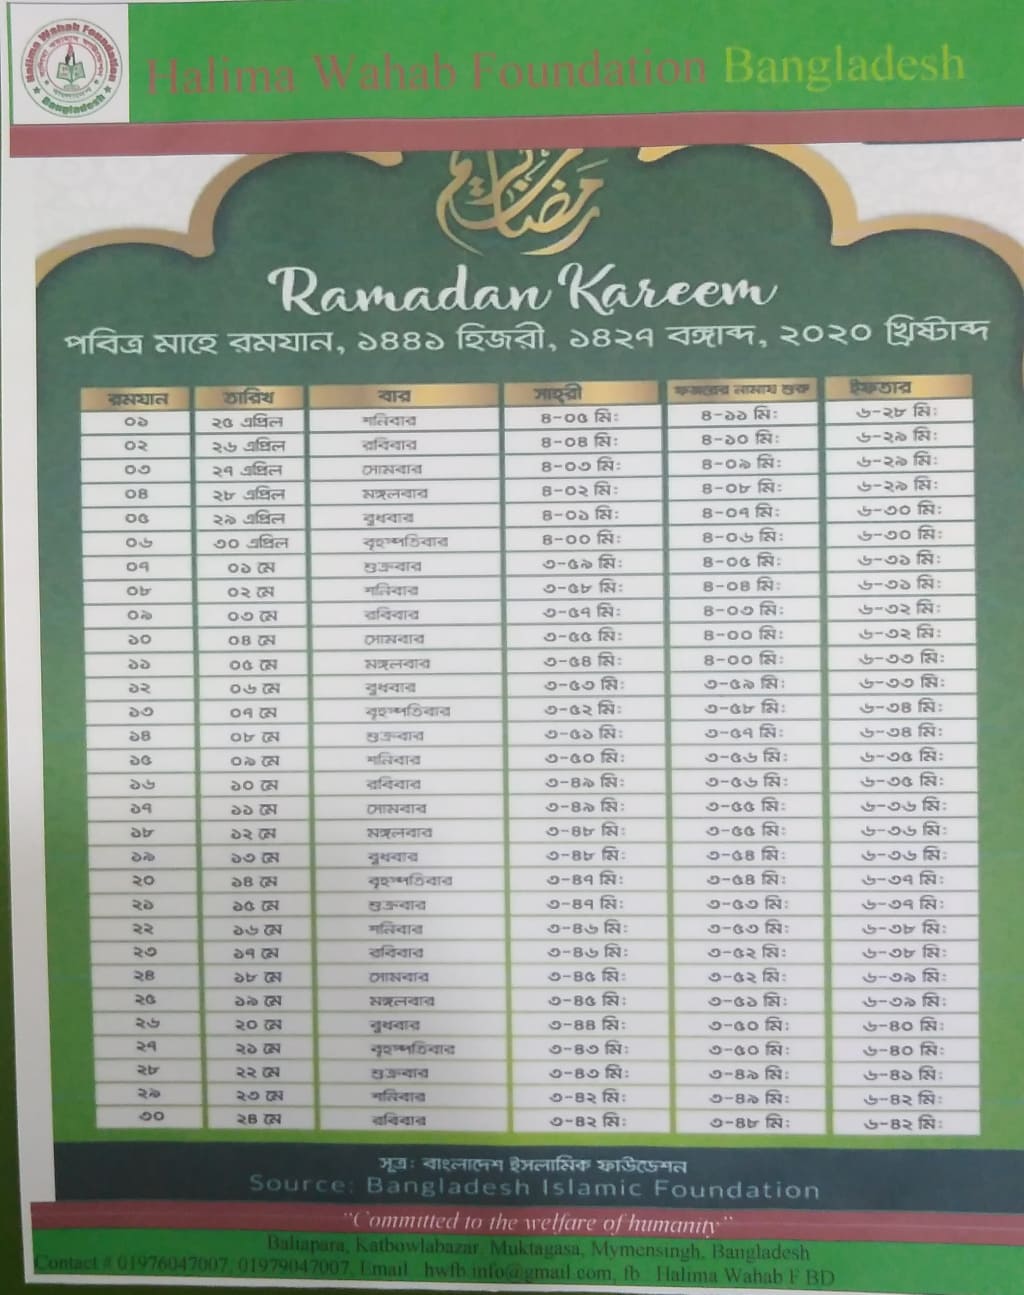 Halima Wahab Foundation
Bangladesh
Halima Wahab Foundation Bangladesh
Ramadan Kareem
পবিত্র মাহে রমযান, ১৪৪১ হিজরী, ১৪২৭ বঙ্গাব্দ, ২০২০ খ্রিষ্টাব্দ
রমযান তারিখ বার সাহ্‌রী ফজরের নামায শুরু ইফতার
০১ ২৫ এপ্রিল শনিবার ৪-০৫ মি: ৪-১১ মি: ৬-২৮ মি:
০২ ২৬ এপ্রিল রবিবার ৪-০৪ মি: ৪-১০ মি: ৬-২৯ মি:
০৩ ২৭ এপ্রিল সোমবার ৪-০৩ মি: ৪-০৯ মি: ৬-২৯ মি:
০৪ ২৮ এপ্রিল মঙ্গলবার ৪-০২ মি: ৪-০৮ মি: ৬-২৯ মি:
০৫ ২৯ এপ্রিল বুধবার ৪-০১ মি: ৪-০৭ মি: ৬-৩০ মি:
০৬ ৩০ এপ্রিল বৃহস্পতিবার ৪-০০ মি: ৪-০৬ মি: ৬-৩০ মি:
০৭ ০১ মে শুক্রবার ৩-৫৯ মি: ৪-০৫ মি: ৬-৩১ মি:
০৮ ০২ মে শনিবার ৩-৫৮ মি: ৪-০৪ মি: ৬-৩১ মি:
০৯ ০৩ মে রবিবার ৩-৫৭ মি: ৪-০৩ মি: ৬-৩২ মি:
১০ ০৪ মে সোমবার ৩-৫৫ মি: ৪-০০ মি: ৬-৩২ মি:
১১ ০৫ মে মঙ্গলবার ৩-৫৪ মি: ৪-০০ মি: ৬-৩৩ মি:
১২ ০৬ মে বুধবার ৩-৫৩ মি: ৩-৫৯ মি: ৬-৩৩ মি:
১৩ ০৭ মে বৃহস্পতিবার ৩-৫২ মি: ৩-৫৮ মি: ৬-৩৪ মি:
১৪ ০৮ মে শুক্রবার ৩-৫১ মি: ৩-৫৭ মি: ৬-৩৪ মি:
১৫ ০৯ মে শনিবার ৩-৫০ মি: ৩-৫৬ মি: ৬-৩৫ মি:
১৬ ১০ মে রবিবার ৩-৪৯ মি: ৩-৫৬ মি: ৬-৩৫ মি:
১৭ ১১ মে সোমবার ৩-৪৯ মি: ৩-৫৫ মি: ৬-৩৬ মি:
১৮ ১২ মে মঙ্গলবার ৩-৪৮ মি: ৩-৫৫ মি: ৬-৩৬ মি:
১৯ ১৩ মে বুধবার ৩-৪৮ মি: ৩-৫৪ মি: ৬-৩৬ মি:
২০ ১৪ মে বৃহস্পতিবার ৩-৪৭ মি: ৩-৫৪ মি: ৬-৩৭ মি:
২১ ১৫ মে শুক্রবার ৩-৪৭ মি: ৩-৫৩ মি: ৬-৩৭ মি:
২২ ১৬ মে শনিবার ৩-৪৬ মি: ৩-৫৩ মি: ৬-৩৮ মি:
২৩ ১৭ মে রবিবার ৩-৪৬ মি: ৩-৫২ মি: ৬-৩৮ মি:
২৪ ১৮ মে সোমবার ৩-৪৫ মি: ৩-৫২ মি: ৬-৩৯ মি:
২৫ ১৯ মে মঙ্গলবার ৩-৪৫ মি: ৩-৫১ মি: ৬-৩৯ মি:
২৬ ২০ মে বুধবার ৩-৪৪ মি: ৩-৫০ মি: ৬-৪০ মি:
২৭ ২১ মে বৃহস্পতিবার ৩-৪৩ মি: ৩-৫০ মি: ৬-৪০ মি:
২৮ ২২ মে শুক্রবার ৩-৪৩ মি: ৩-৪৯ মি: ৬-৪১ মি:
২৯ ২৩ মে শনিবার ৩-৪২ মি: ৩-৪৯ মি: ৬-৪২ মি:
৩০ ২৪ মে রবিবার ৩-৪২ মি: ৩-৪৮ মি: ৬-৪২ মি:
সূত্র: বাংলাদেশ ইসলামিক ফাউন্ডেশন
Source: Bangladesh Islamic Foundation
"Committed to the welfare of humanity"
Baliapara, Katbowlabazar, Muktagasa, Mymensingh, Bangladesh
Contact # 01976047007, 01979047007, Email hwfb.info@gmail.com, fb Halima Wahab F BD